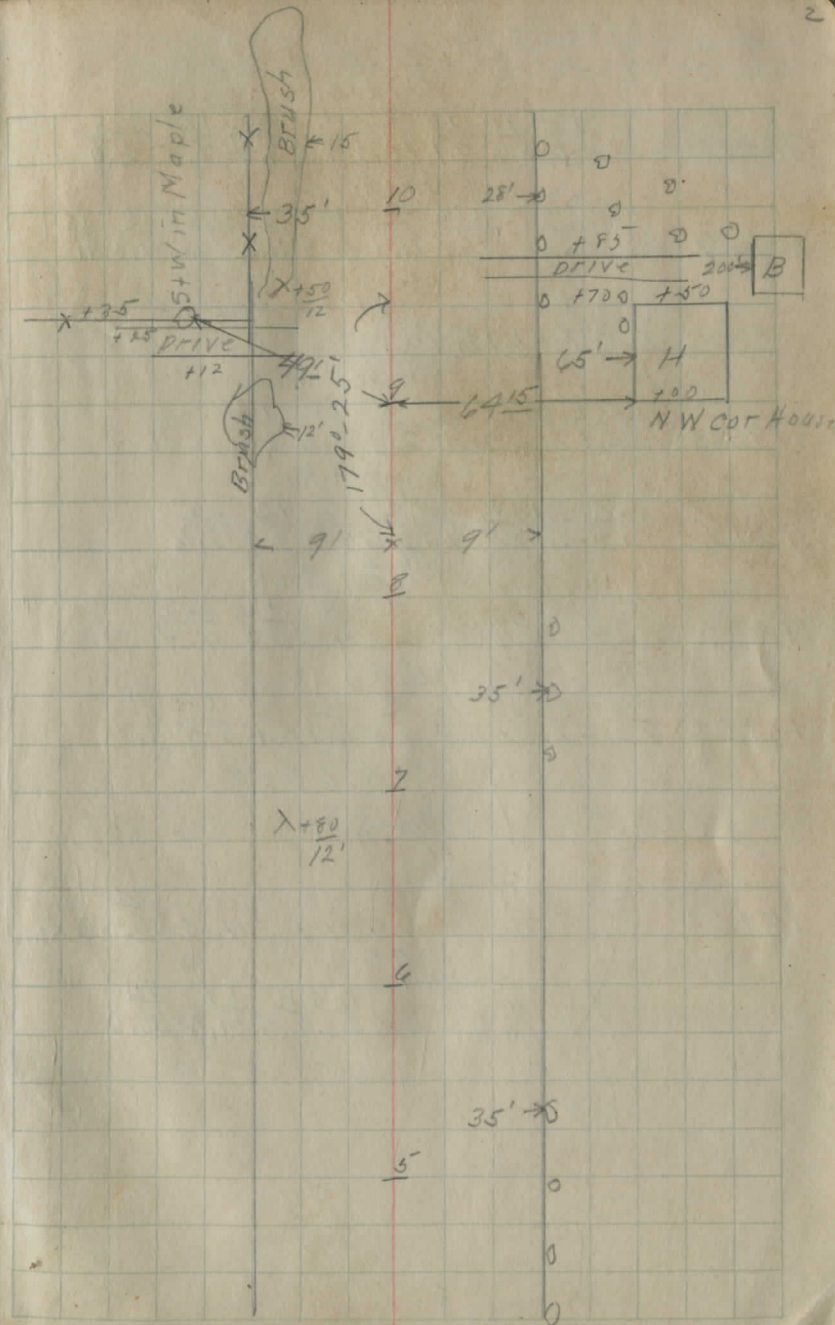 2
Brush
15
S+W in Maple
35'
10
28'
+85
Drive
200'
B
λ+50
12
+70
+50
+35
+25
Drive
+12
49'
65'
H
9
64 15
+00
N W cor House
12'
Brush
179°-25'
9'
9'
8
35'
7
λ+80
12'
6
35'
5